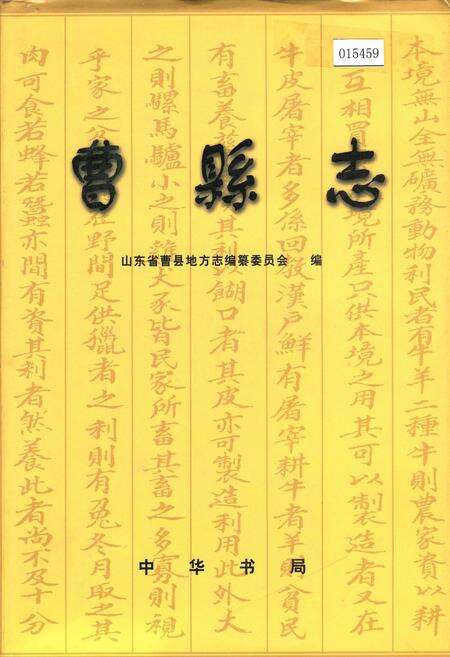 015459
曹縣志
山东省曹县地方志编纂委员会 编
中华书局
本境無山全無礦務動物利民者有牛羊二種牛則農家賚以耕
互相買境所產只供本境之用其可以製造者又在
牛皮屠宰者多係回教漢戶鮮有屠宰耕牛者羊則貧民
有畜養其利以餬口者其皮亦可製造利用此外大
之則騾馬驢小之則犬豕皆民家所畜其畜之多寡則視
乎家之在野間足供獵者之利則有兔冬月取之其
肉可食若蜂若蠶亦間有資其利者然養此者尚不及十分